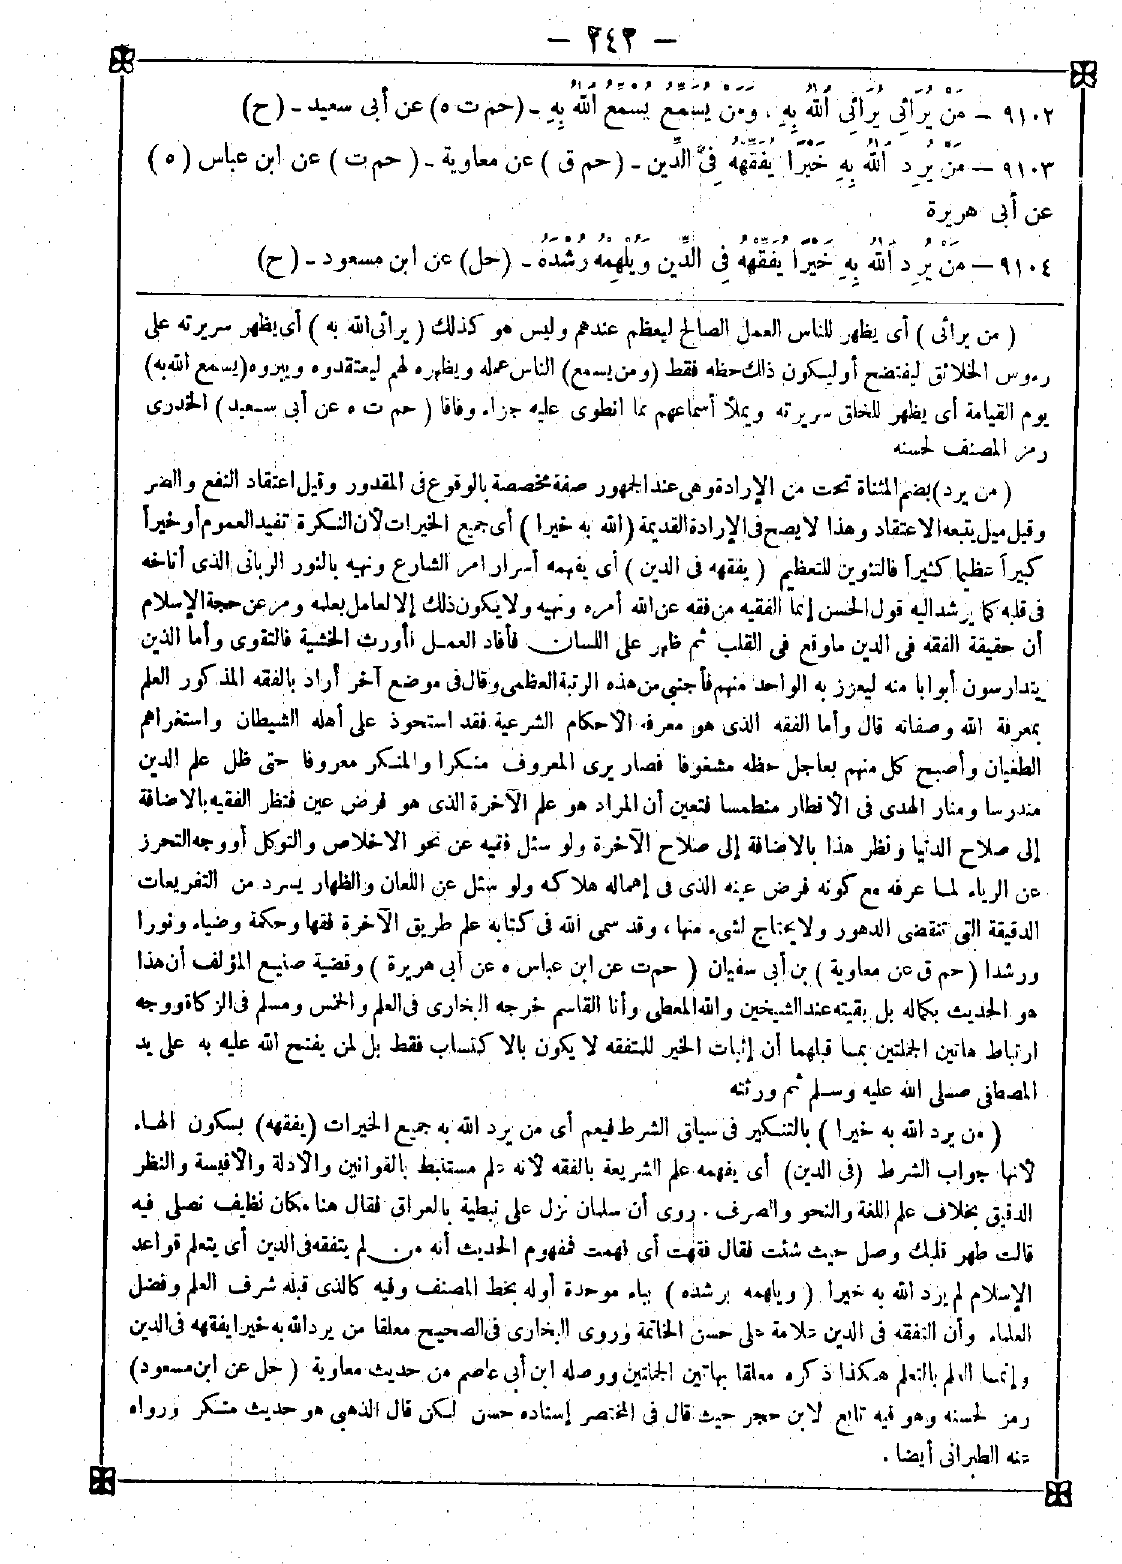 — ٢٤٢ —
٩١٠٢ – مَنْ يُرَائِي يُرَائِي اللهُ بِهِ، وَمَنْ يُسَمِّعْ يُسَمِّعِ اللهُ بِهِ - (حم ت ه) عن أبى سعيد - (ح)
٩١٠٣ – مَنْ يُرِدِ اللهُ بِهِ خَيْرًا يُفَقِّهْهُ فِي الدِّينِ - (حم ق) عن معاوية - (حم ت) عن ابن عباس (ه)
عن أبى هريرة
٩١٠٤ – مَنْ يُرِدِ اللهُ بِهِ خَيْرًا يُفَقِّهْهُ فِي الدِّينِ وَيُلْهِمْهُ رُشْدَهُ - (حل) عن ابن مسعود - (ح)
(من يرائى) أى يظهر للناس العمل الصالح ليعظم عندهم وليس هو كذلك (يرائى الله به) أى يظهر سريرته على
رءوس الخلائق ليفتضح أو ليكون ذلك حظه فقط (ومن يسمع) الناس عمله ويظهره لهم ليعتقدوه ويبروه (يسمع الله به)
يوم القيامة أى يظهر للخلق سريرته ويملأ أسماعهم بما انطوى عليه جزاء وفاقا (حم ت ه عن أبى سعيد) الخدرى
رمز المصنف لحسنه
(من يرد) بضم المثناة تحت من الإرادة وهى عند الجمهور صفة مخصصة بالوقوع فى المقدور وقيل اعتقاد النفع والضر
وقيل ميل يتبعه الاعتقاد وهذا لا يصح فى الإرادة القديمة (الله به خيرا) أى جميع الخيرات لأن النكرة تفيد العموم أو خيراً
كبيراً عظيما كثيراً فالتنوين للتعظيم (يفقهه فى الدين) أى يفهمه أسرار امر الشارع ونهيه بالنور الربانى الذى أناخه
فى قلبه كما يرشد اليه قول الحسن إنما الفقيه من فقه عن الله أمره ونهيه ولا يكون ذلك إلا لعامل بعلمه ومر عن حجة الإسلام
أن حقيقة الفقه فى الدين ماوقع فى القلب ثم ظهر على اللسان فأفاد العمل فأورث الخشية فالتقوى وأما الذين
يتدارسون أبوابا منه ليعزز به الواحد منهم فأجنبي من هذه الرتبة العظمى وقال فى موضع آخر أراد بالفقه المذكور العلم
بمعرفة الله وصفاته قال وأما الفقه الذى هو معرفة الأحكام الشرعية فقد استحوذ على أهله الشيطان واستغراهم
الطغيان وأصبح كل منهم بعاجل حظه مشغوفا فصار يرى المعروف منكرا والمنكر معروفا حتى ظل علم الدين
مندرسا ومنار الهدى فى الأقطار منطمسا فتعين أن المراد هو علم الآخرة الذى هو فرض عين فنظر الفقيه بالاضافة
إلى صلاح الدنيا ونظر هذا بالاضافة إلى صلاح الآخرة ولو سئل فقيه عن نحو الاخلاص والتوكل أو وجه التحرز
عن الرياء لما عرفه مع كونه فرض عينه الذى فى إهماله هلاكه ولو سئل عن اللعان والظهار يسرد من التفريعات
الدقيقة التى تنقضى الدهور ولا يحتاج لشىء منها، وقد سمى الله فى كتابه علم طريق الآخرة فقها وحكمة وضياء ونورا
ورشدا (حم ق عن معاوية) بن أبى سفيان (حم ت عن ابن عباس ه عن أبى هريرة) وقضية صنيع المؤلف أن هذا
هو الحديث بكماله بل بقيته عند الشيخين والله المعطى وأنا القاسم خرجه البخارى فى العلم والخمس ومسلم فى الزكاة ووجه
ارتباط هاتين الجملتين بما قبلهما أن إثبات الخير للمتفقه لا يكون بالاكتساب فقط بل لمن يفتح الله عليه به على يد
المصطفى صلى الله عليه وسلم ثم ورثته
(من يرد الله به خيرا) بالتنكير فى سياق الشرط فيعم أى من يرد الله به جميع الخيرات (يفقهه) بسكون الهاء
لأنها جواب الشرط (فى الدين) أى يفهمه علم الشريعة بالفقه لأنه علم مستنبط بالقوانين والأدلة والأقيسة والنظر
الدقيق بخلاف علم اللغة والنحو والصرف. روى أن سلمان نزل على نبطية بالعراق فقال هنا مكان نظيف نصلى فيه
قالت طهر قلبك وصل حيث شئت فقال فقهت أى فهمت فمفهوم الحديث أنه من لم يتفقه فى الدين أى يتعلم قواعد
الإسلام لم يرد الله به خيرا (ويلهمه برشده) بباء موحدة أوله بخط المصنف وفيه كالذى قبله شرف العلم وفضل
العلماء وأن التفقه فى الدين علامة على حسن الخاتمة وروى البخارى فى الصحيح معلقا من يرد الله به خيرا يفقهه فى الدين
وإنما العلم بالتعلم هكذا ذكره معلقا بهاتين الجملتين ووصله ابن أبى عاصم من حديث معاوية (حل عن ابن مسعود)
رمز لحسنه وهو فيه تابع لابن حجر حيث قال فى المختصر إسناده حسن لكن قال الذهبي هو حديث منكر ورواه
عنه الطبرانى أيضا.